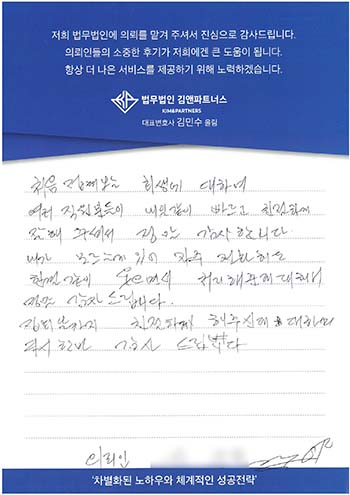 저희 법무법인에 의뢰를 맡겨 주셔서 진심으로 감사드립니다.
의뢰인들의 소중한 후기가 저희에겐 큰 도움이 됩니다.
항상 더 나은 서비스를 제공하기 위해 노력하겠습니다.
법무법인 김앤파트너스
KIM&PARTNERS
대표변호사 김민수 올림
처음 접해보는 회생에 대하여
여러 직원분들이 내일같이 빠르고 친절하게
주셔서 정말 감사합니다.
내가 있어 자주 전화해도
한결같이 웃으면서 대해서
감사드립니다.
친절하게 해주신데 대하여
다시한번 감사 드립니다
의뢰인
'차별화된 노하우와 체계적인 성공전략'